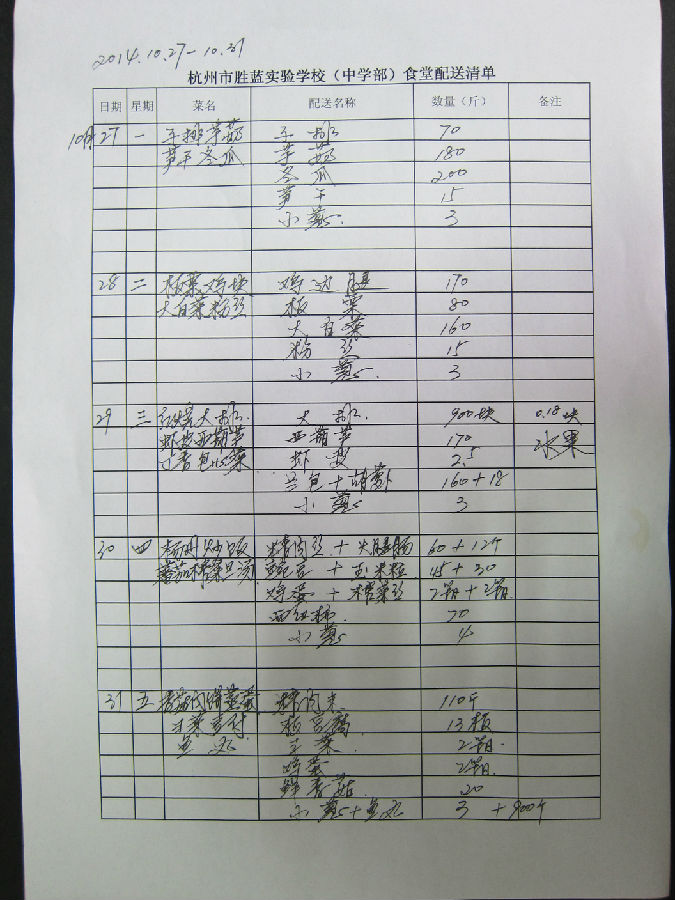 2014.10.27-10.31
杭州市胜蓝实验学校（中学部）食堂配送清单
日期 星期 菜名 配送名称 数量（斤） 备注
10月27 一 70
冬瓜 180
冬瓜 200
笋干 15
小葱 3
28 二 板栗鸡块 鸡边腿 170
大白菜粉丝 板栗 80
大白菜 160
粉丝 15
小葱 3
29 三 红烧大排 大排 900块 0.18块
虾皮西葫芦 西葫芦 170 水果
虾皮 2.5
包+胡萝卜 160+18
小葱 3
30 四 扬州炒饭 精肉丝+火腿肠 60+12个
蕃茄榨菜旦汤 豌豆+玉米粒 45+30
鸡蛋+榨菜丝 2箱+2箱
西红柿 70
小葱 4
31 五 精肉末 110斤
板豆腐 13板
鱼丸 2箱
鸡蛋 2箱
鲜香菇 20
小葱+鱼丸 3 +900个